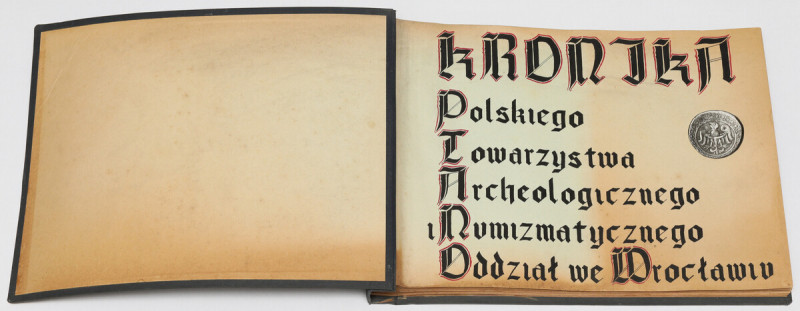 KRONIKA
Polskiego
Towarzystwa
Archeologicznego
i Numizmatycznego
Oddział we Wrocławiu